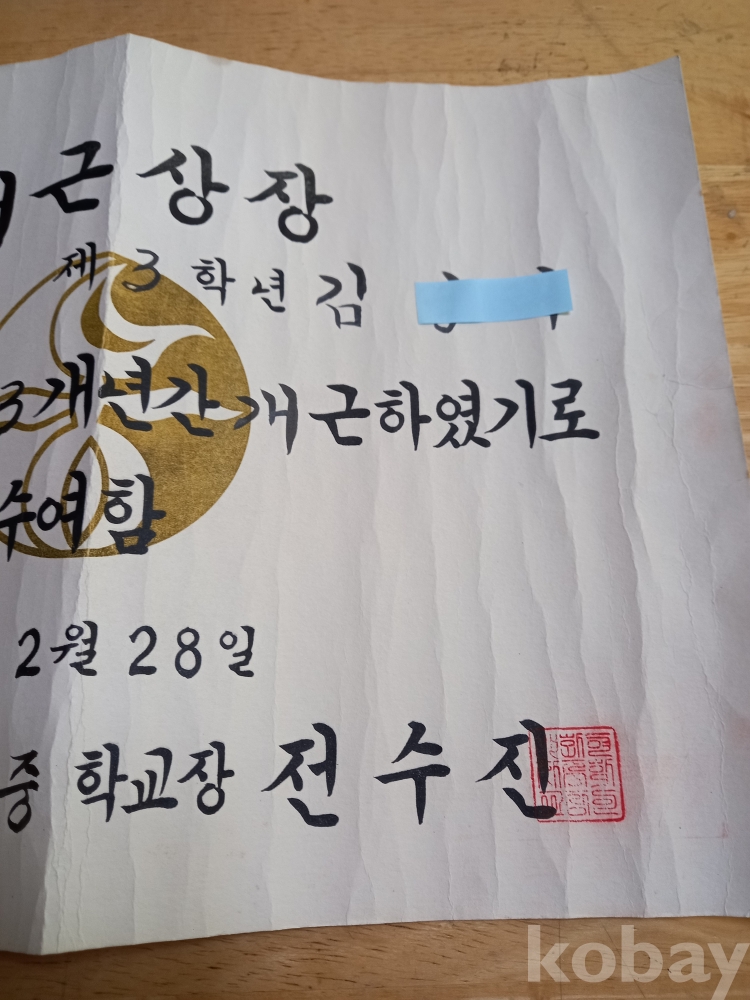 근상장
제3학년 김
3개년간 개근하였기로
수여함
2월 28일
중 학교장 전수진
kobay